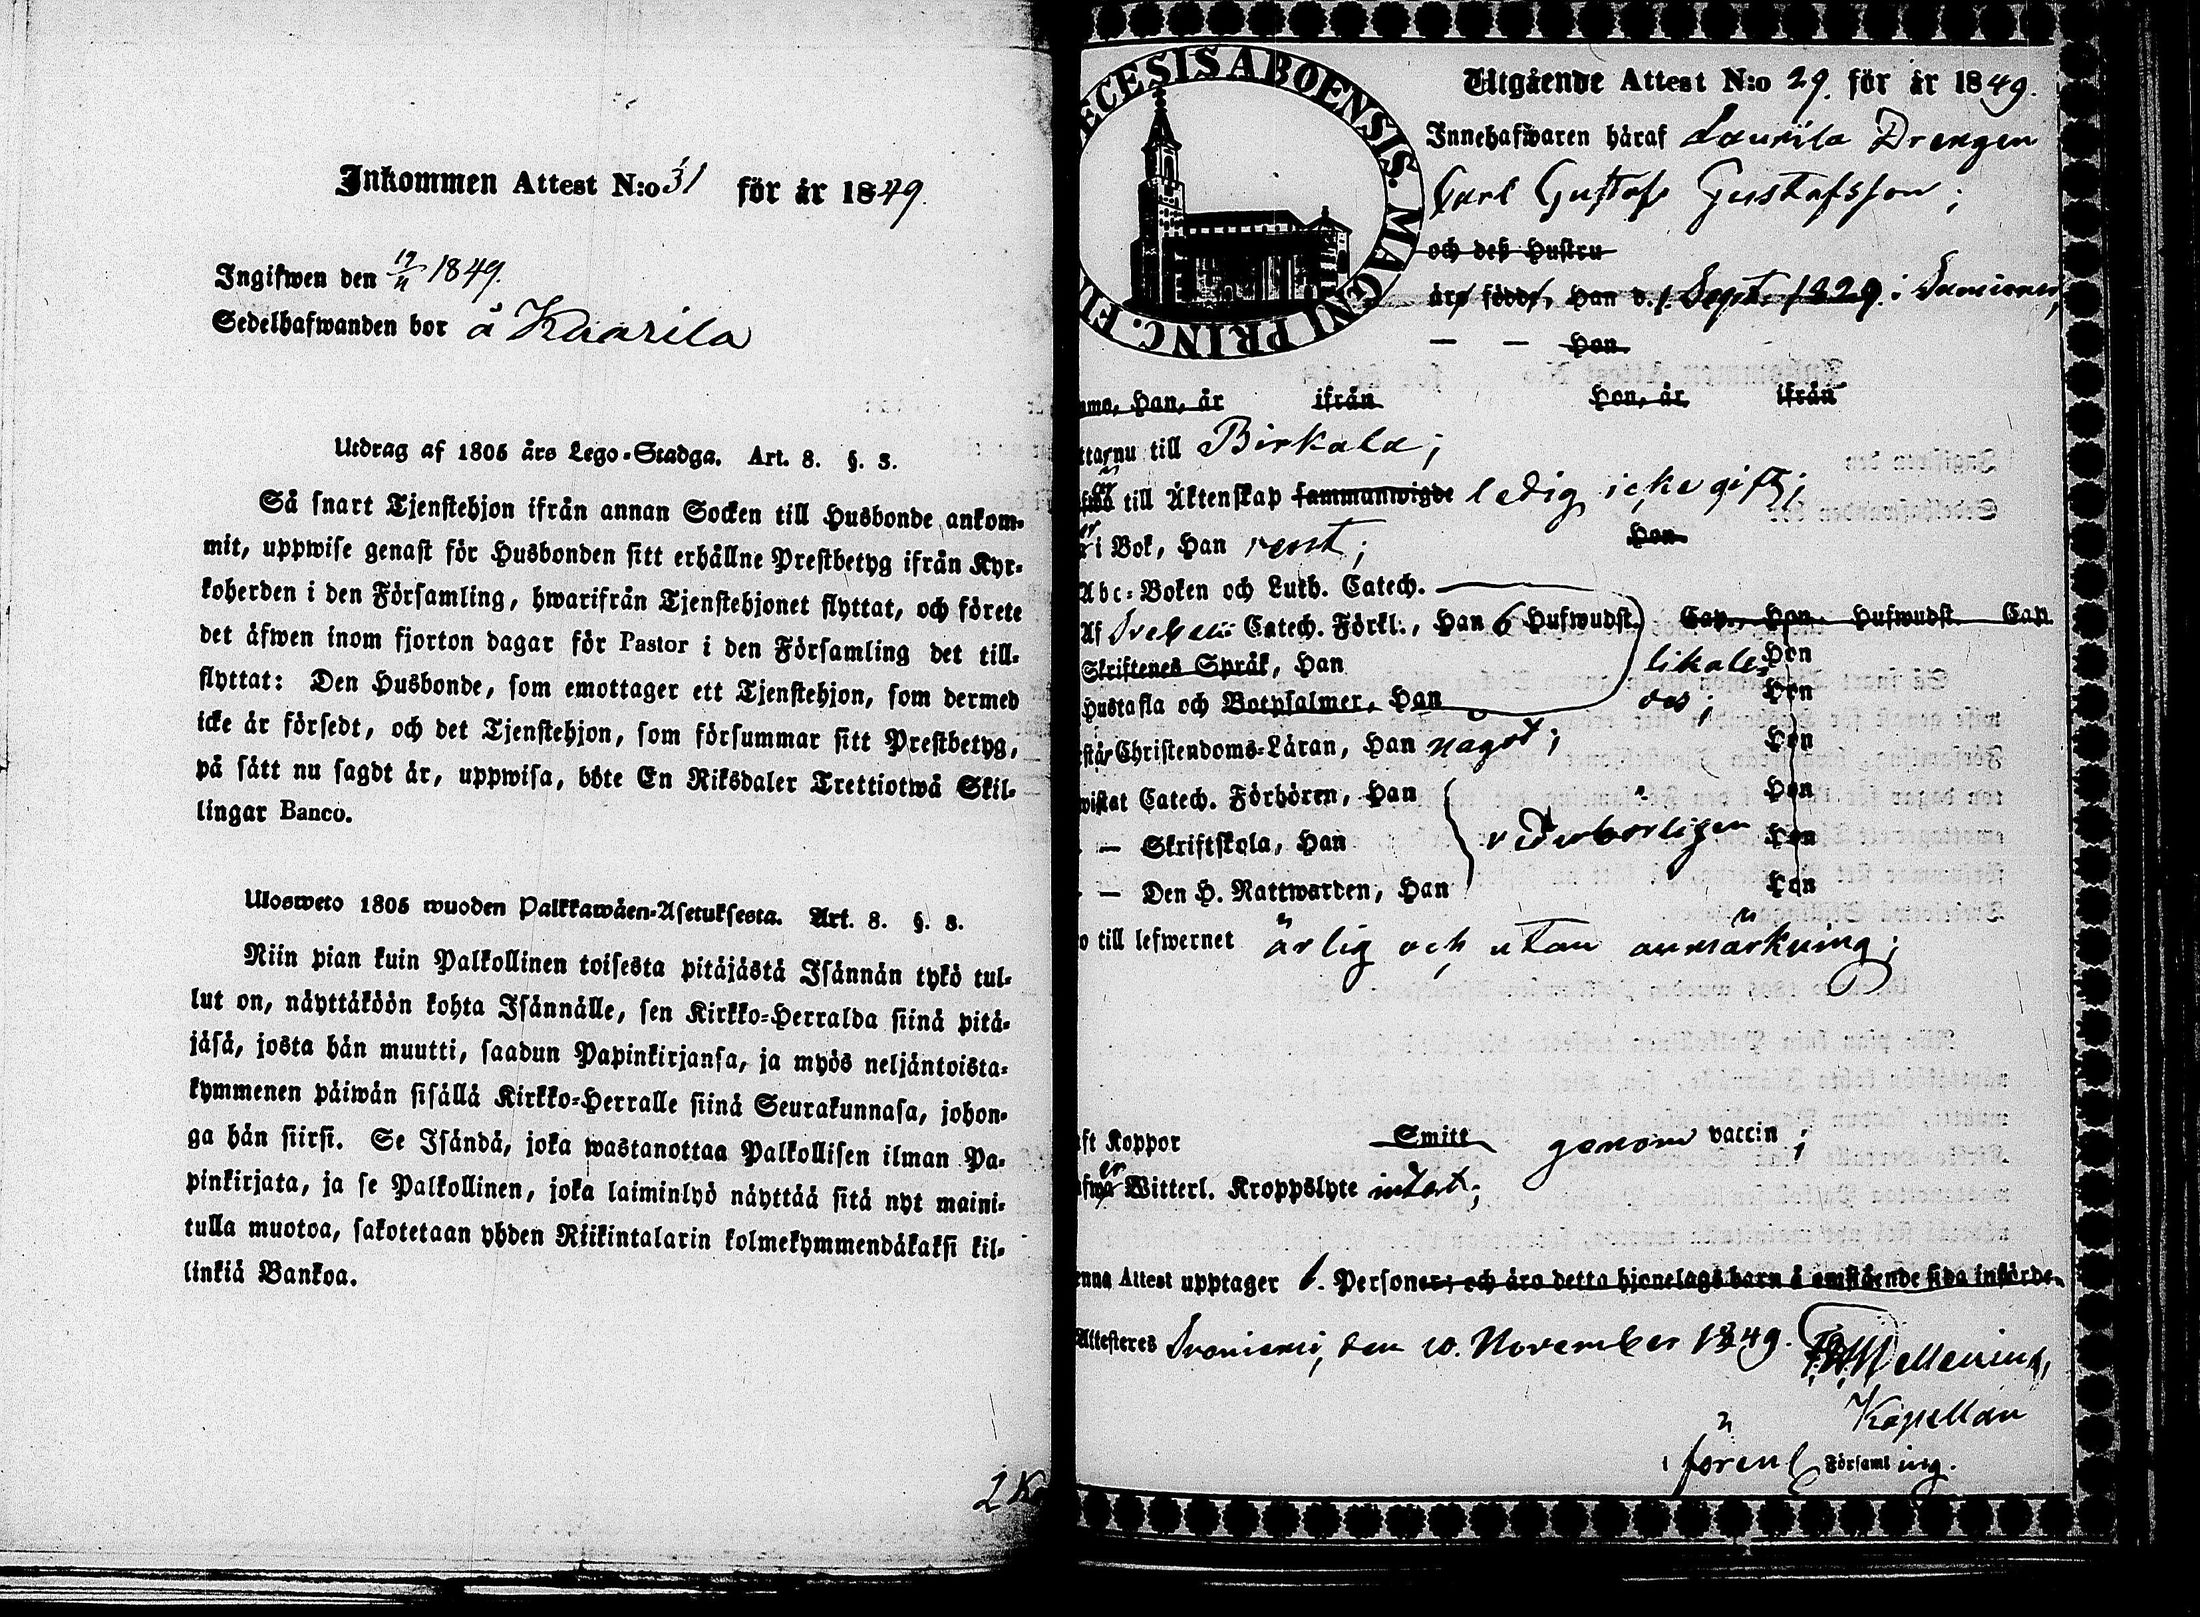 Inkommen Attest N:o 31 för år 1849.
Ingifwen den 19/11 1849.
Sedelhafwanden bor å Kaarila
Utdrag af 1805 års Lego-Stadga. Art. 8. §. 3.
Så snart Tjenstehjon ifrån annan Socken till Husbonde ankom-
mit, uppwise genast för Husbonden sitt erhållne Prestbetyg ifrån Kyr-
koherden i den Församling, hwarifrån Tjenstehjonet flyttat, och förete
det äfwen inom fjorton dagar för Pastor i den Församling det till-
flyttat: Den Husbonde, som emottager ett Tjenstehjon, som dermed
icke är försedt, och det Tjenstehjon, som försummar sitt Prestbetyg,
på sätt nu sagdt är, uppwisa, böte En Riksdaler Trettiotwå Skil-
lingar Banco.
Ulosweto 1805 wuoden Palkkawäen-Asetuksesta. Art. 8. §. 3.
Niin pian kuin Palkollinen toisesta pitäjästä Isännän tykö tul-
lut on, näyttäköön kohta Isännälle, sen Kirkko-Herralda siinä pitä-
jäsä, josta hän muutti, saadun Papinkirjansa, ja myös neljäntoista-
kymmenen päiwän sisällä Kirkko-Herralle siinä Seurakunnasa, johon-
ga hän siirsi. Se Isändä, joka wastanottaa Palkollisen ilman Pa-
pinkirjata, ja se Palkollinen, joka laiminlyö näyttää sitä nyt maini-
tulla muotoa, sakotetaan yhden Riikintalarin kolmekymmendäkaksi kil-
linkiä Bankoa.
ECESIS ABOENSIS. MAGNI PRINC. FI
Utgående Attest N:o 29. för år 1849.
Innehafwaren häraf Laurila Drengen
Carl Gustaf Gustafsson;
och deß Hustru
äro födde, Han d. 1 Sept. 1829. i
— — Hon
Han, år ifrån Hon, år ifrån
nu till Birkala;
till Äktenskap sammanwigde ledig icke gift;
i Bok, Han rent; Hon
Abc-Boken och Luth. Catech.
Af Catech. Förkl., Han 6 Hufwudst. Cap., Hon Hufwudst. Cap.
Skriftenes Språk, Han likale- Hon
Hustafla och Botpsalmer, Han des; Hon
Christendoms-Läran, Han något; Hon
wistat Catech. Förhören, Han Hon
— Skriftskola, Han vederbörligen Hon
— Den H. Nattwarden, Han Hon
till lefwernet ärlig och utan anmärkning;
Koppor Smitt genom vaccin;
Witterl. Kroppslyte intet;
enna Attest upptager 1. Personer; och äro detta hjonelags barn å omstående sida införde.
Attesteres den 10. November 1849.
Kapellan
i förenl Församl ing.